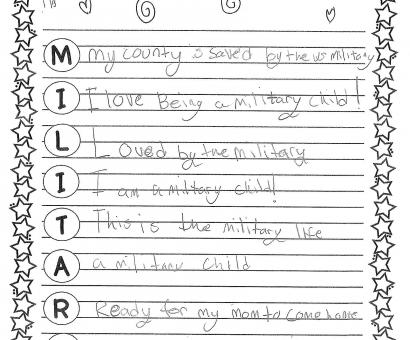 M my county is saved by the us military
I I love Being a military child!
L Loved by the military
I I am a military child!
T This is the military life
A a military child
R Ready for my mom to come home